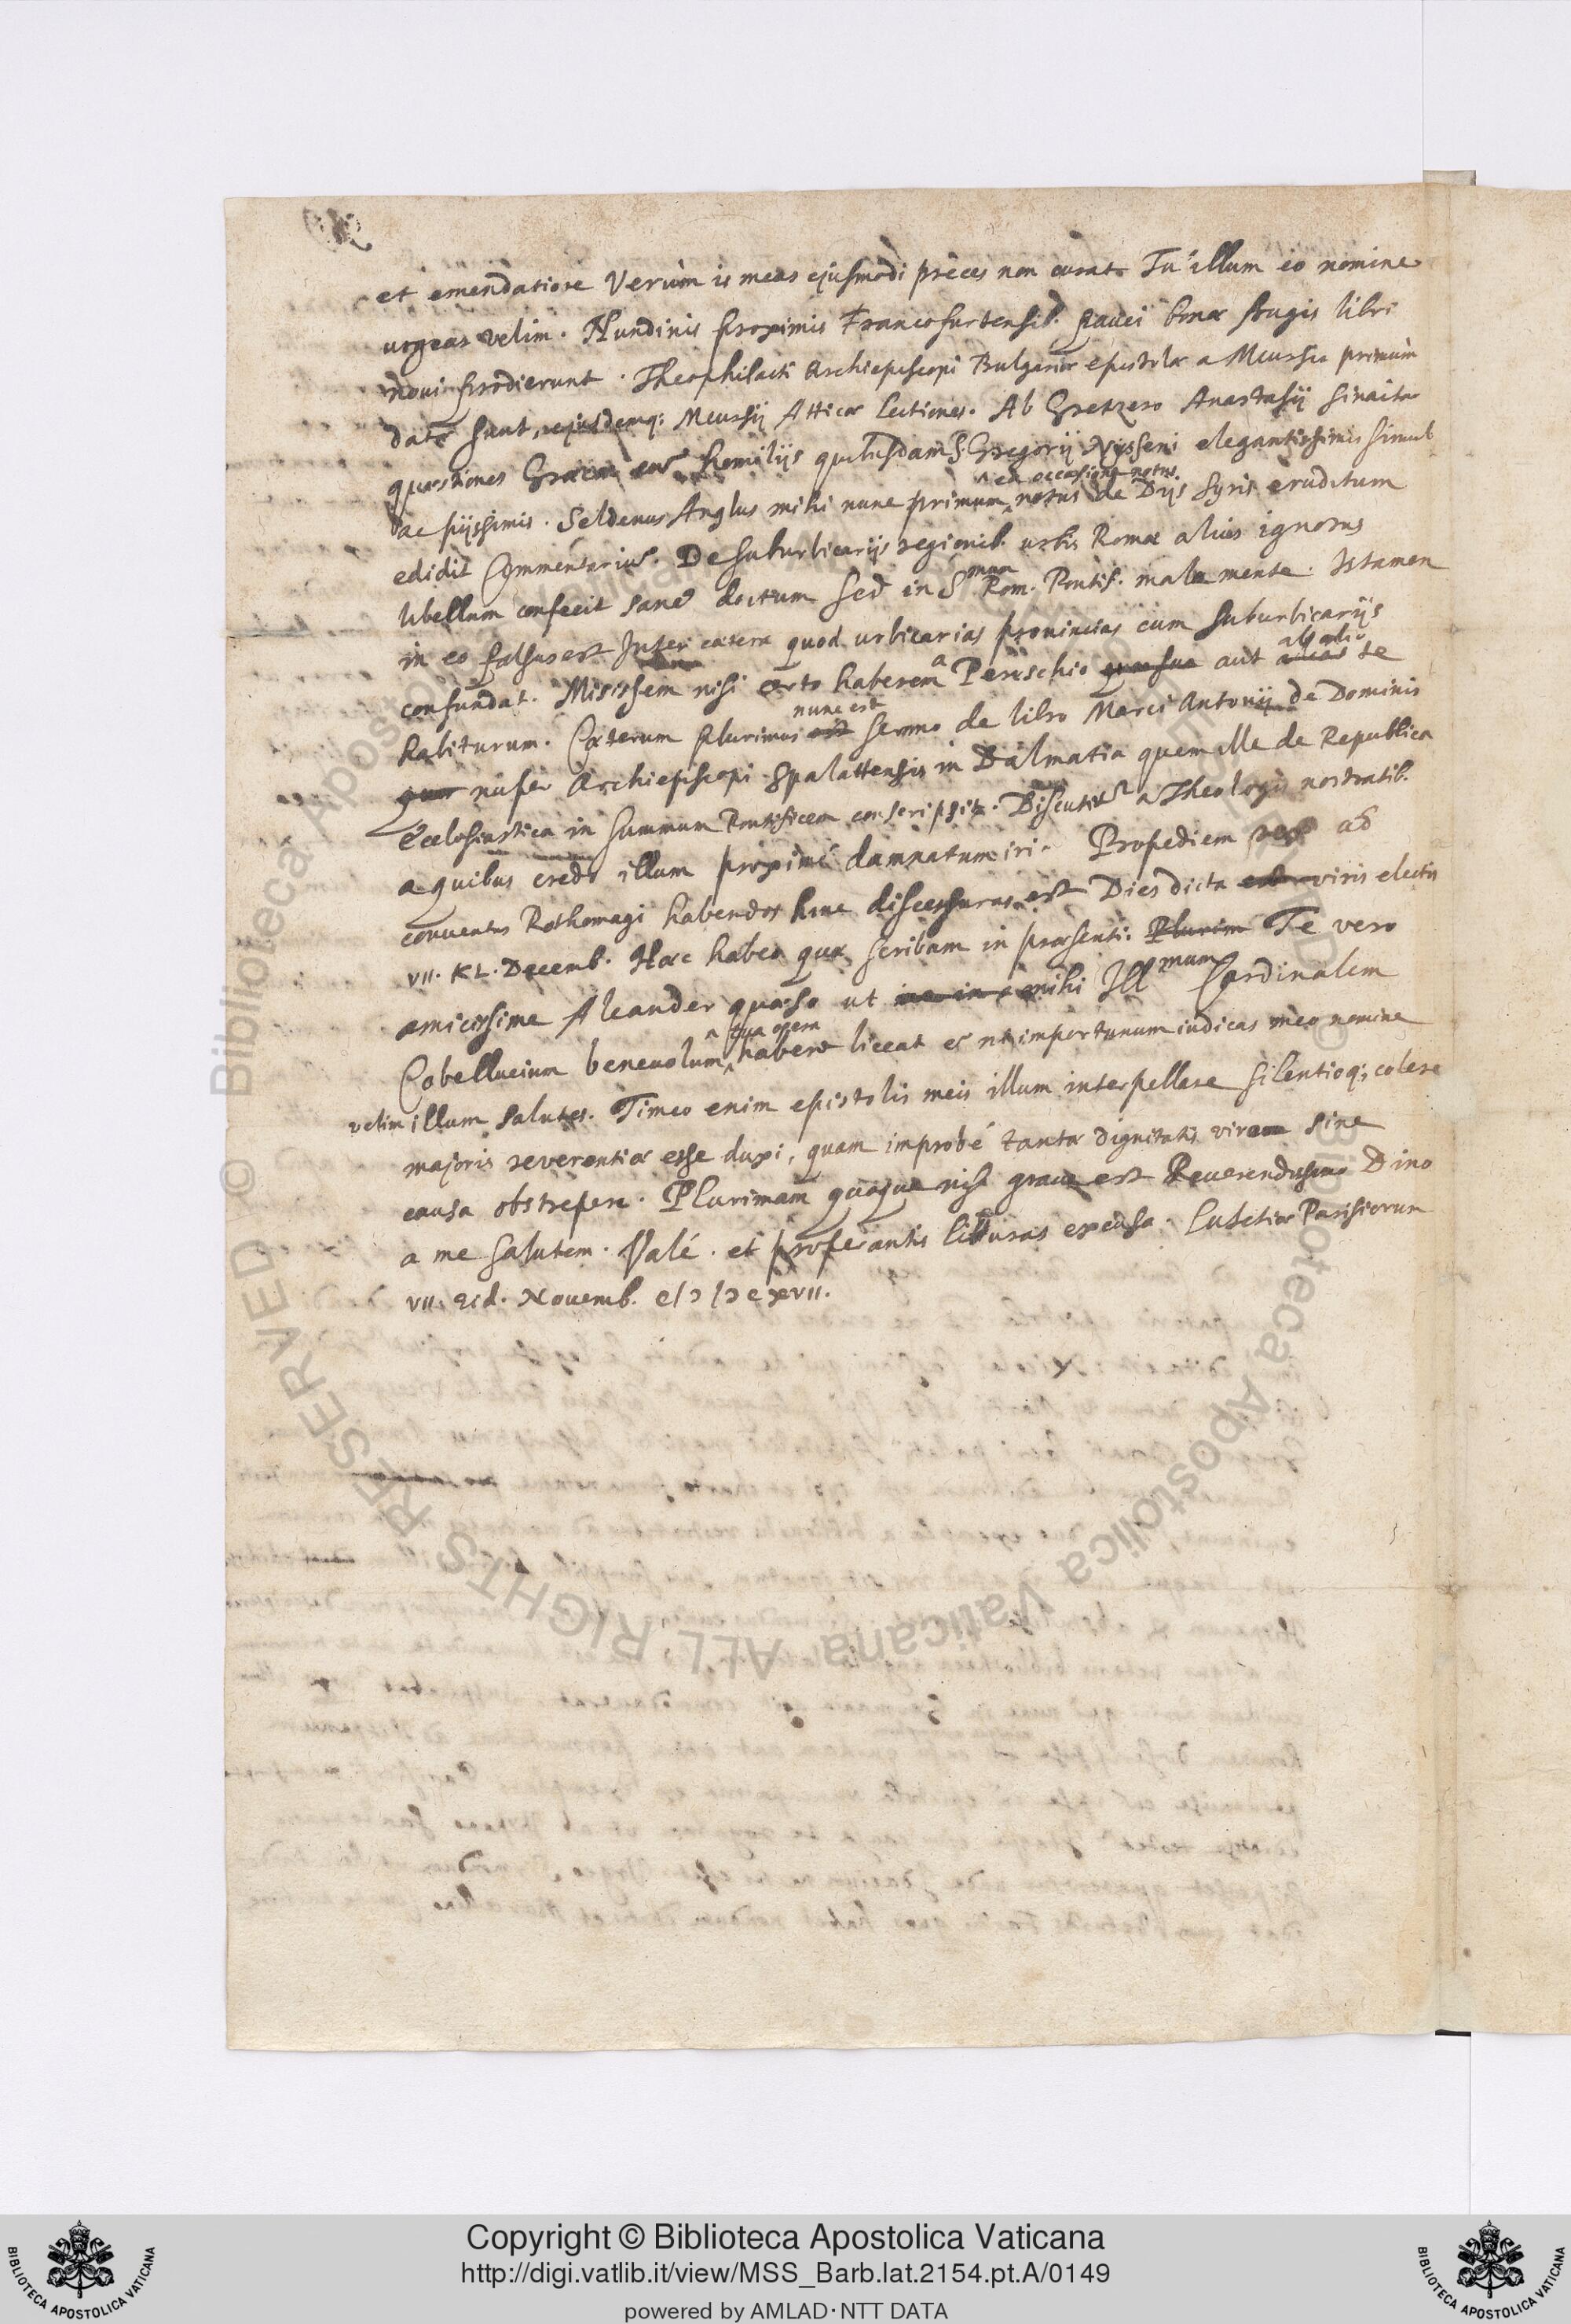 et emendatiore Verùm is meas ejusmodi preces non curat. Tu illum eo nomine
urgeas velim. Nundinis proximis Francofurtensib. pauci bonæ frugis libri
novi prodierunt. Theophilacti Archiepiscopi Bulgariæ epistolæ a Meursio primùm
datæ sunt, ejusdemq; Meursij Atticæ Lectiones. Ab Gretzero Anastasij Sinaitæ
quæstiones Græcæ cum homilijs quibusdam S. Gregorij Nysseni elegantissimis simul
ac pijssimis. Seldenus Anglus mihi nunc primum notus de Dijs Syris eruditum
^ ea occasione notus
edidit Commentariũ. De suburbicarijs regionib. urbis Romæ alius ignotus
libellum confecit sane doctum sed in Smum Rom. Pontif. mala mente. Is tamen
in eo falsus est Inter cætera quod urbicarias provincias cum suburbicarijs
confundat. Misissem nisi certo haberem a Pereschio aut aliundè te
habiturum. Cæterum plurimus nunc est sermo de libro Marci Antonij de Dominis
nuper Archiepiscopi Spalattensis in Dalmatia quem ille de Republica
Ecclesiastica in summum Pontificem conscripsit. Discutitur a Theologis nostratib.
a quibus credo illum proximè damnatum iri. Propediem rex ad
conventus Rothomagi habendos hinc discessurus est Dies dicta viris electis
VII. KL. Decemb. Hæc habeo quæ scribam in præsenti. Plurim Te vero
amicissime Aleander quæso ut mihi Illmum Cardinalem
Cobellucium benevolum ^ tua opera habere liceat et ni importunum iudicas meo nomine
velim illum salutes. Timeo enim epistolis meis illum interpellare silentioq; colere
majoris reverentiæ esse duxi, quam improbé tantæ dignitatis virum sine
causa obstrepere. Plurimam quoque nisi grave est Reverendissimo Dino
a me salutem. Valé. et properantis lituras excusa. Lutetiæ Parisiorum
VII. Eid. Novemb. cIɔ Iɔ c xvii.
Copyright © Biblioteca Apostolica Vaticana
http://digi.vatlib.it/view/MSS_Barb.lat.2154.pt.A/0149
powered by AMLAD·NTT DATA
BIBLIOTECA APOSTOLICA VATICANA
BIBLIOTECA APOSTOLICA VATICANA